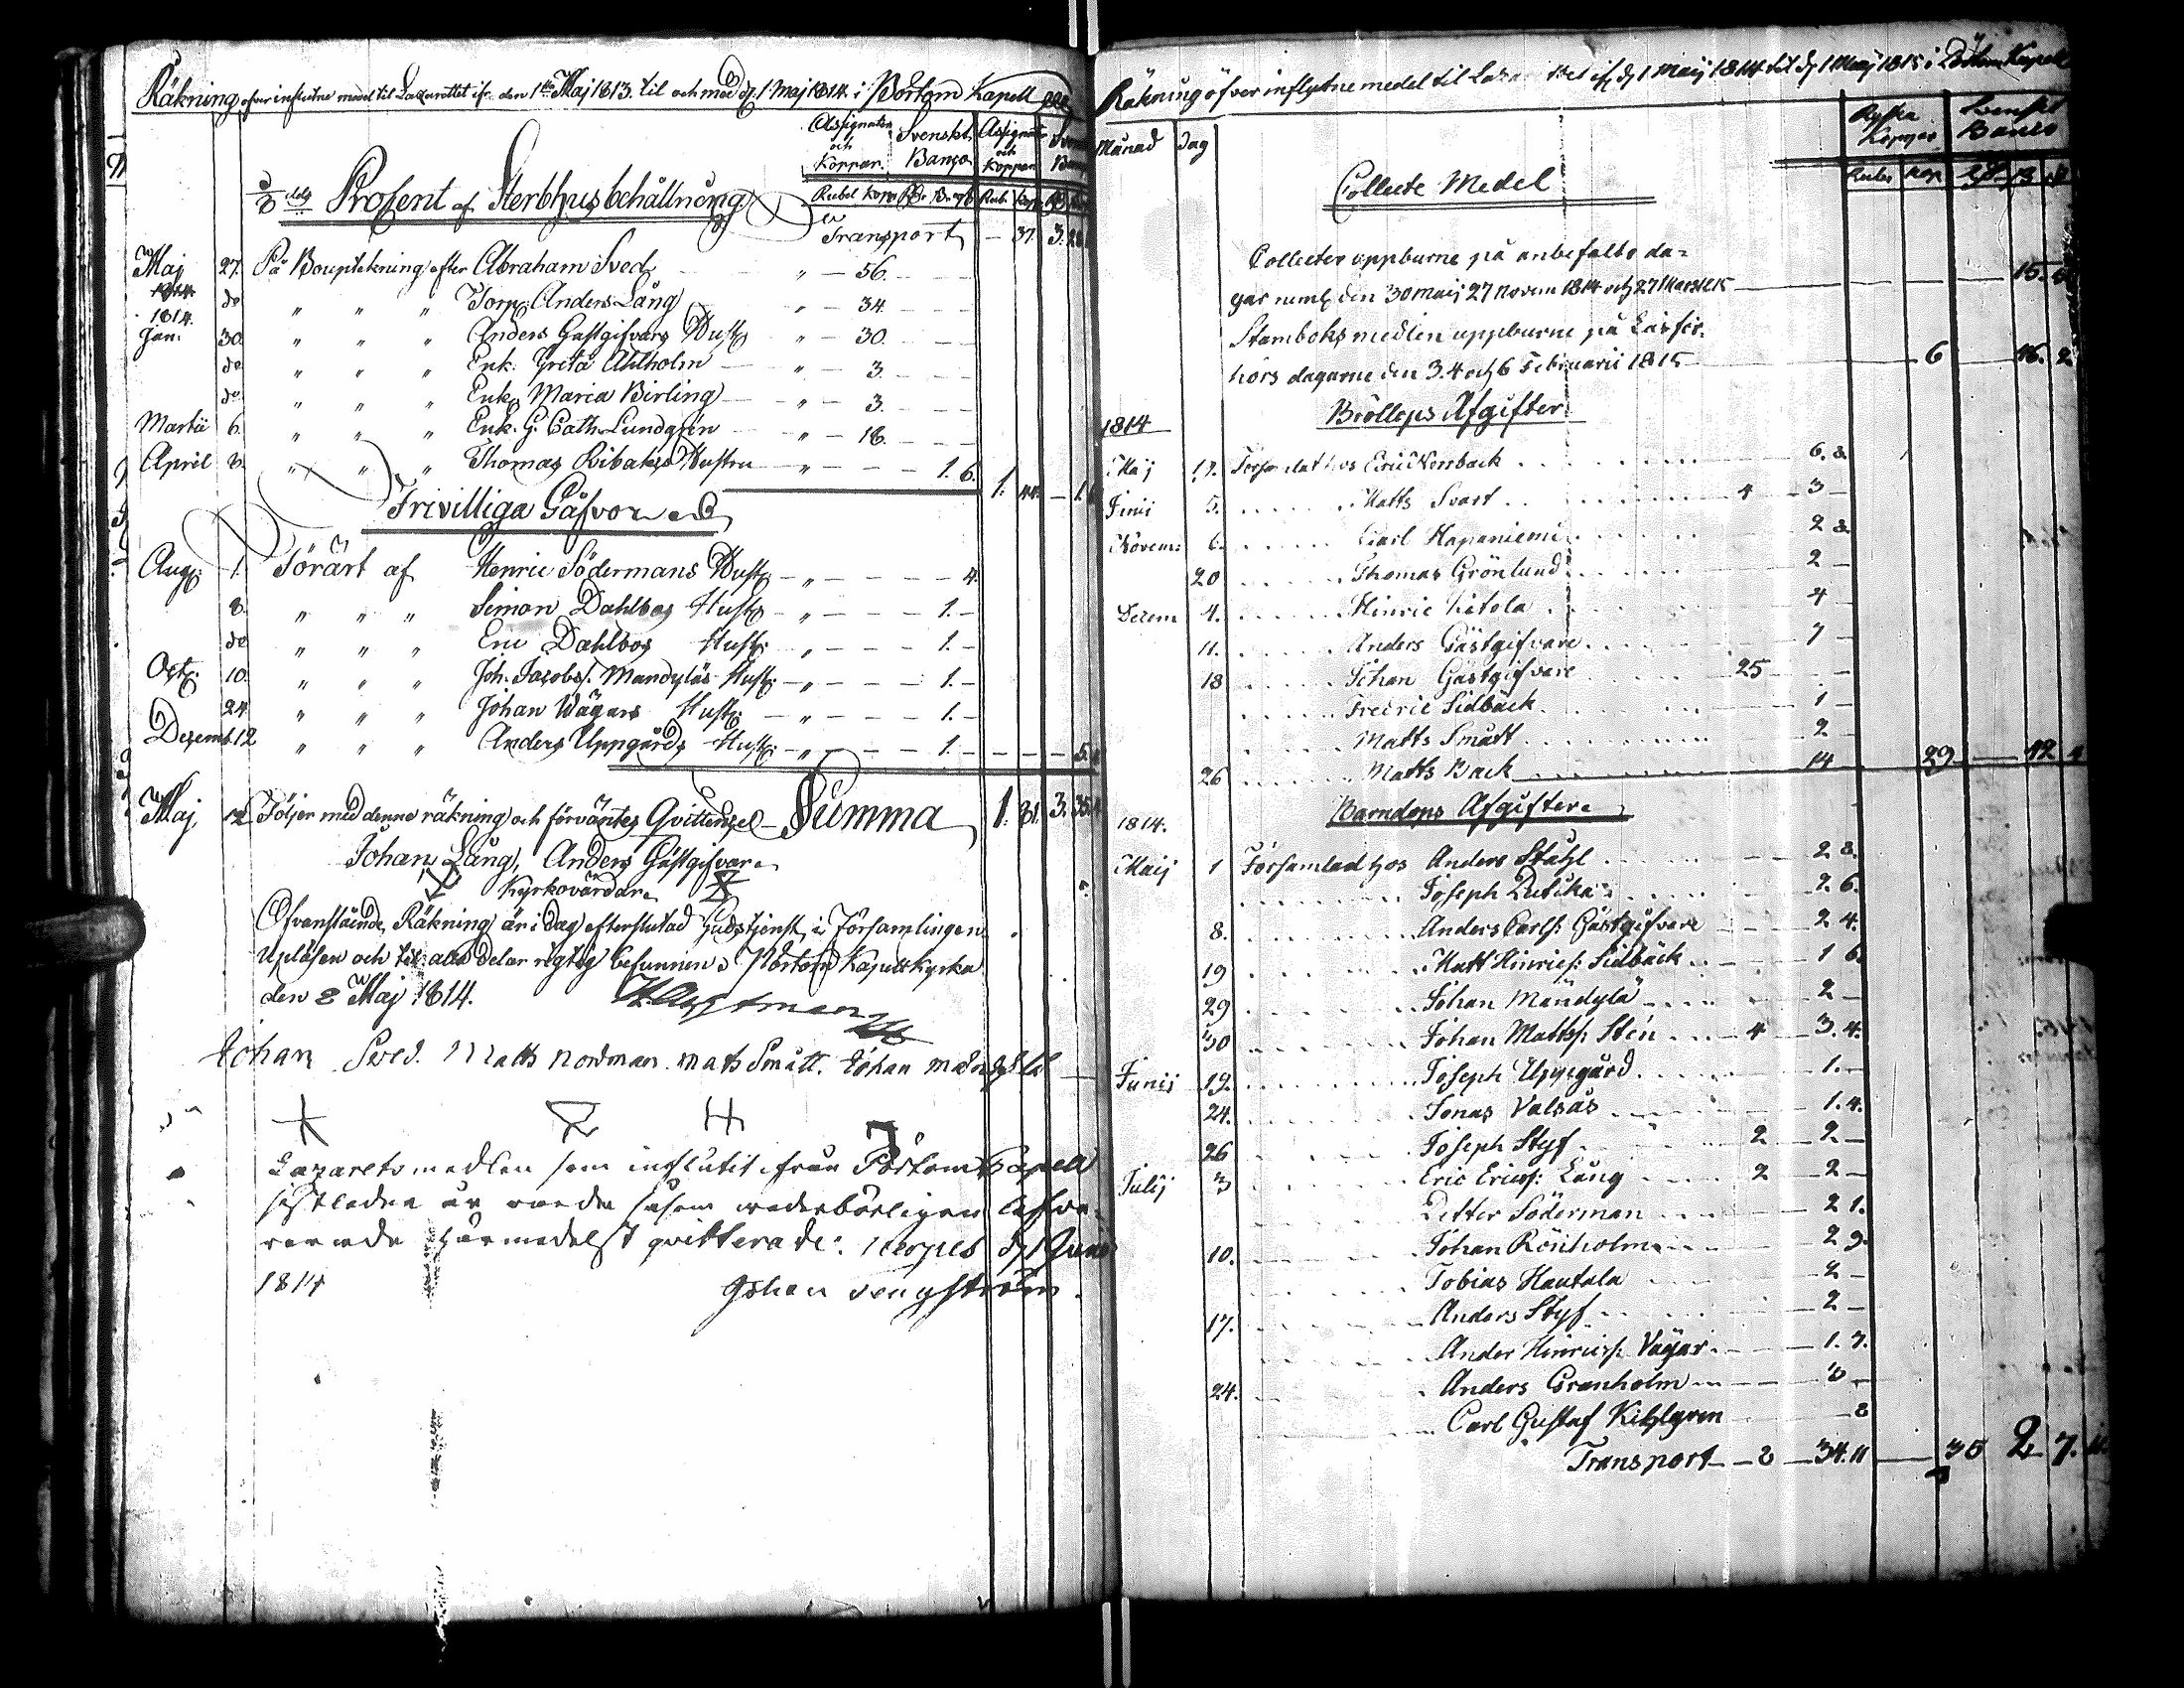 Räkning öfver influtne medel til Lazarettet ifr. den 1sta Maj 1813. til och med d. 1 Maj 1814. i Pörtom Kapell
Assignater och Koppar. Svenskt Banco Assignater och Koppar
Rubel Kop. Rd. B. Rub. Kop.
Procent af Sterbhus behållning
Transport — 37. 3.
Maj 27. På Bouptekning efter Abraham Sved " — 56. —
1814.
do " " " Torp. Anders Lång " — 34. —
1814.
Jan. 30. " " " Anders Gästgifvars Hust. " — 30. —
do " " " Enk. Greta Ahlholm — " — 3. —
do " " " Enk. Maria Birling — " — 3. —
Martii 6. " " " Enk. G. Cath. Lundgrén — " — 18. —
April 3. " " " Thomas Ribakas Hustru — " — — 1. 6. 1. 44. — 1.
Frivilliga Gåfvor
Aug. 1. Förärt af Henric Södermans Hust. — " — — 4.
8. " " " Simon Dahlbos Hust. — " — — 1. —
do " " " Eric Dahlbos Hust. " — — 1. —
Oct. 10. " " " Joh. Jacobs. Mandyläs Hust. — " — — 1. —
24. " " " Johan Wägars Hust. — " — — 1. —
Dezemb. 12 " " " Anders Uppgårds Hust. — " — — 1. — — — 5.
Maj, Följer med denne räkning och förväntes Qvittense — Summa 1. 81. 3. 35.
Johan Lång, Anders Gästgifvare
Kyrkovärdar
Ofvanstående Räkning är i dag efter slutad Gudstjenst, i Församlingen
Upläsen och til alla delar rigtig befunnen i Pörtom Kapells Kyrka
den 8 Maj 1814.
Johan Sved. Matts Nordman. Mats Smått. Johan Mandylä
Lazaretsmedlen som influtit ifrån Pörtom Capell
sistleden år vorde såsom wederbörligen lefve-
rerade härmedelst qvitterade. Nerpes d. 1 Juni
1814 Johan Tengström.
Räkning öfver inflytne medel til Lazarettet ifr. d. 1 Maij 1814 til d. 1 Maij 1815 i Pörtom Kapell
Månad Dag Ryska Koppar Svenskt Banco
Rubel Kop.
Collecte Medel
Collecter uppburne på anbefalte da-
gar neml. den 30 Maij 27 Novem 1814 och 27 Mars 1815 — 15.
Stamboks medlen uppburne på Läsför-
hörs dagarne den 3. 4 och 6 Februarii 1815 — 6 — 16. 2
Bröllops Afgifter
1814
Maij 17. Församlat hos Eric Norrback . . . 6. 8.
Junii 5. . . . Matts Svart . . . 4 — 3 —
Novem: 6. . . . Carl Hapaniemi . . . 2 8.
20 . . . Thomas Grönlund . . . 2 —
Decem 4. . . . Hinric Kitola . . . 4 —
11. . . . Anders Gästgifvare . . . 7 —
18 . . . Johan Gästgifvare . . . 25 —
. . . Fredric Sidbäck . . . 1 —
. . . Matts Smått . . . 2 —
26 . . . Matts Back . . . 14 29 — 42
Barndops Afgifter
1814.
Maij 1 Församlad hos Anders Ståhl . . . 2 8.
. . . Joseph Dutika . . . 2. 6.
8. . . . Anders Carls. Gästgifvare — 2 4.
19 . . . Matt Hinrics. Sidbäck . . . 1 6.
29 . . . Johan Mandylä . . . 2 —
30 . . . Johan Matts. Stén . . . 4 — 3. 4.
Junij 19. . . . Joseph Uppgård . . . 1. —
24. . . . Jonas Valsås . . . 1. 4.
26 . . . Joseph Styf . . . 2 — 2 —
Julij 3 . . . Eric Erics. Lång . . . 2 — 2 —
. . . Petter Söderman . . . 2 1.
10. . . . Johan Rönholm . . . 2 9.
. . . Tobias Hautala . . . 2 —
17. . . . Anders Styf . . . 2 —
. . . Ander Hinrics. Vägar . . . 1. 7.
24. . . . Anders Granholm —
. . . Carl Gustaf Kihlgren — 8
Transport — 8 — 34. 11 — 35 2 7.